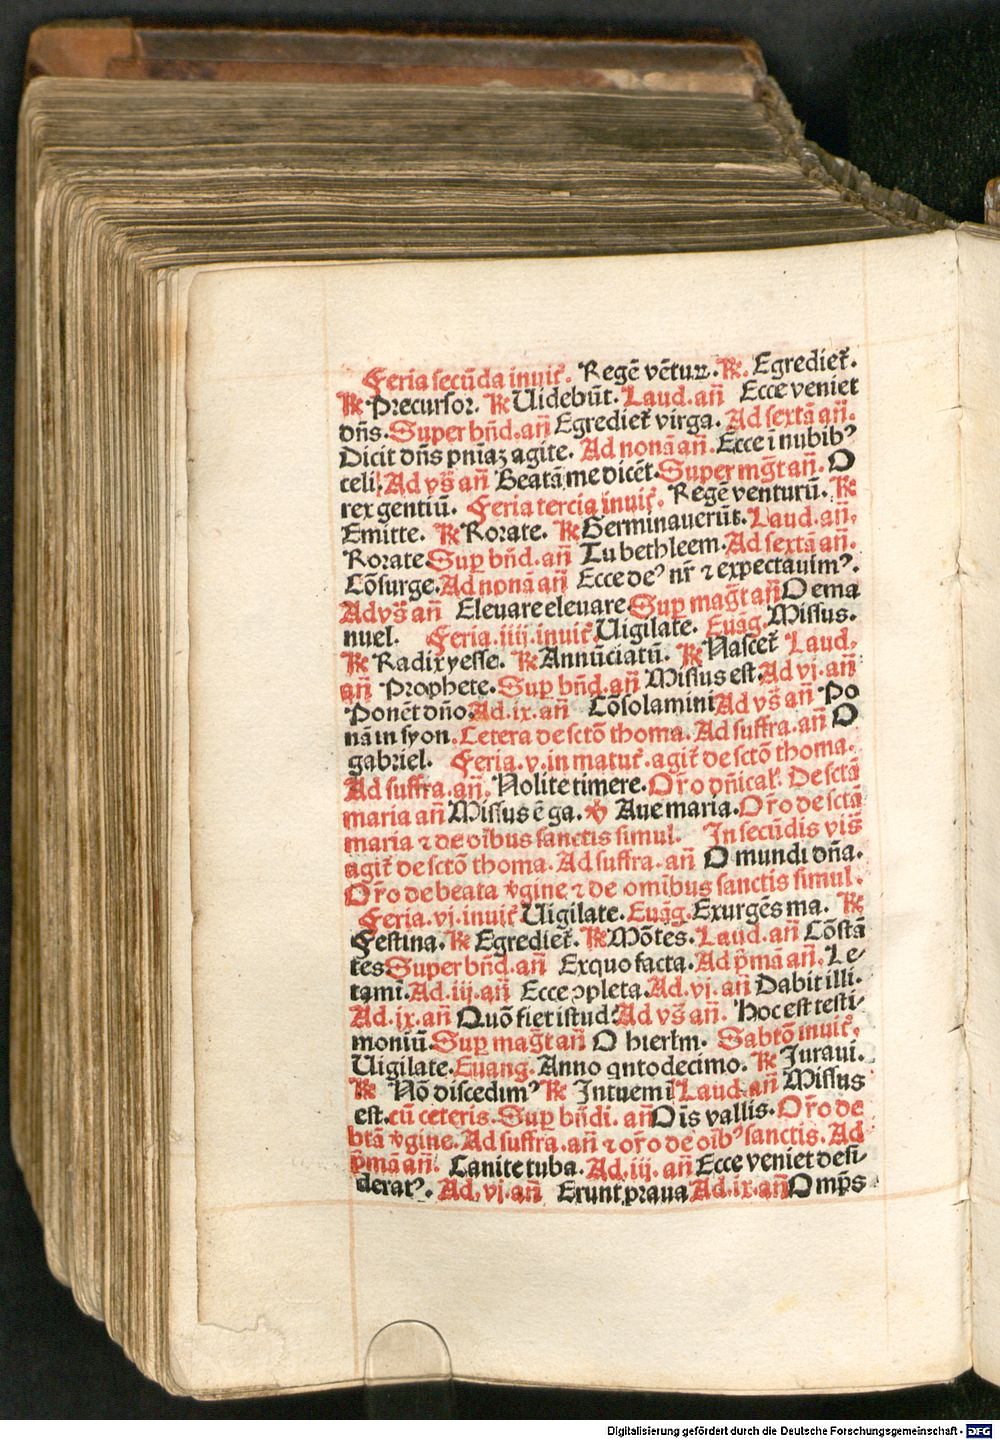 Feria secūda inuit᷑. Regē vētuꝝ. ℟. Egrediet᷑.
℟ Precursor. ℟ Uidebūt. Laud. an̄ Ecce veniet
dn̄s. Super bn̄d. an̄ Egrediet᷑ virga. Ad sextā an̄.
Dicit dn̄s pn̄iaꝫ agite. Ad nonā an̄. Ecce ī nubibꝰ
celi. Ad vs̄ an̄ Beatā me dicēt. Super mg̅t an̄. O
rex gentiū. Feria tercia inuit᷑. Regē venturū. ℟
Emitte. ℟ Rorate. ℟ Germinauerūt. Laud. an̄.
Rorate Suꝑ bn̄d. an̄ Tu bethleem. Ad sextā an̄.
Cōsurge. Ad nonā an̄ Ecce deꝰ nr̄ ⁊ expectauimꝰ.
Ad vs̄ an̄ Eleuare eleuare Suꝑ mag̅t an̄ O ema
nuel. Feria. iiij. inuit᷑. Uigilate. Euāg. Missus.
℟ Radix yesse. ℟ Annūciatū. ℟ Nascet᷑ Laud.
an̄ Prophete. Suꝑ bn̄d. an̄ Missus est. Ad vj. an̄
Ponēt dn̄o. Ad. ix. an̄ Cōsolamini Ad vs̄ an̄ Po
nā in syon. Cetera de sctō thoma. Ad suffra. an̄ O
gabriel. Feria. v. in matut᷑. agit᷑ de sctō thoma.
Ad suffra. an̄. Nolite timere. Or̄o dn̄ical᷑. De sctā
maria an̄ Missus ē ga. ℣ Aue maria. Or̄o de sctā
maria ⁊ de oībus sanctis simul. In secūdis vis̄
agit᷑ de sctō thoma. Ad suffra. an̄ O mundi dn̄a.
Or̄o de beata v̾gine ⁊ de omībus sanctis simul.
Feria. vj. inuit᷑ Uigilate. Euāg. Exurgēs ma. ℟
Festina. ℟ Egrediet᷑. ℟ Mōtes. Laud. an̄ Cōstā
tes Super bn̄d. an̄ Ex quo facta. Ad p̄mā an̄. Le⸗
tamī. Ad. iij. an̄ Ecce ꝯpleta. Ad. vj. an̄ Dabit illi.
Ad. ix. an̄ Quō fiet istud Ad vs̄ an̄. Hoc est testi⸗
moniū. Suꝑ mag̅t an̄ O hierlm. Sabtō inuit᷑.
Uigilate. Euang. Anno qntodecimo. ℟ Juraui.
℟ Nō discedimꝰ ℟ Intuemī Laud. an̄ Missus
est. cū ceteris. Suꝑ bn̄di. an̄ O īs vallis. Or̄o de
btā v̾gine. Ad suffra. an̄ ⁊ or̄o de oībꝰ sanctis. Ad
p̄mā an̄. Canite tuba. Ad. iij. an̄ Ecce veniet desi⸗
deratꝰ. Ad. vj. an̄ Erunt praua Ad. ix. an̄ O mp̄s
Digitalisierung gefördert durch die Deutsche Forschungsgemeinschaft - DFG